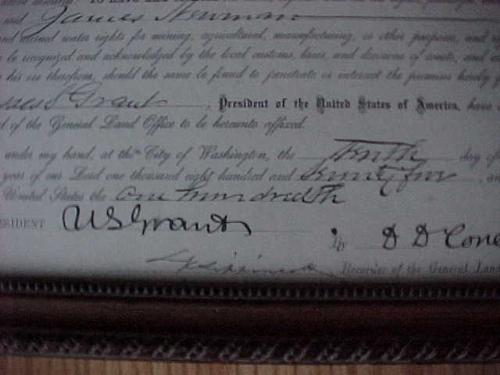 said James Newman
and accrued water rights for mining, agricultural, manufacturing, or other purposes, and
be recognized and acknowledged by the local customs, laws, and decisions of courts, and
his ore therefrom, should the same be found to penetrate or intersect the premises hereby
Grant, President of the United States of America, have
of the General Land Office to be hereunto affixed.
under my hand, at the City of Washington, the Tenth day of
year of our Lord one thousand eight hundred and Seventy five, and
United States the one hundredth
SIDENT U.S. Grant
By D D Cone
Recorder of the General Lan